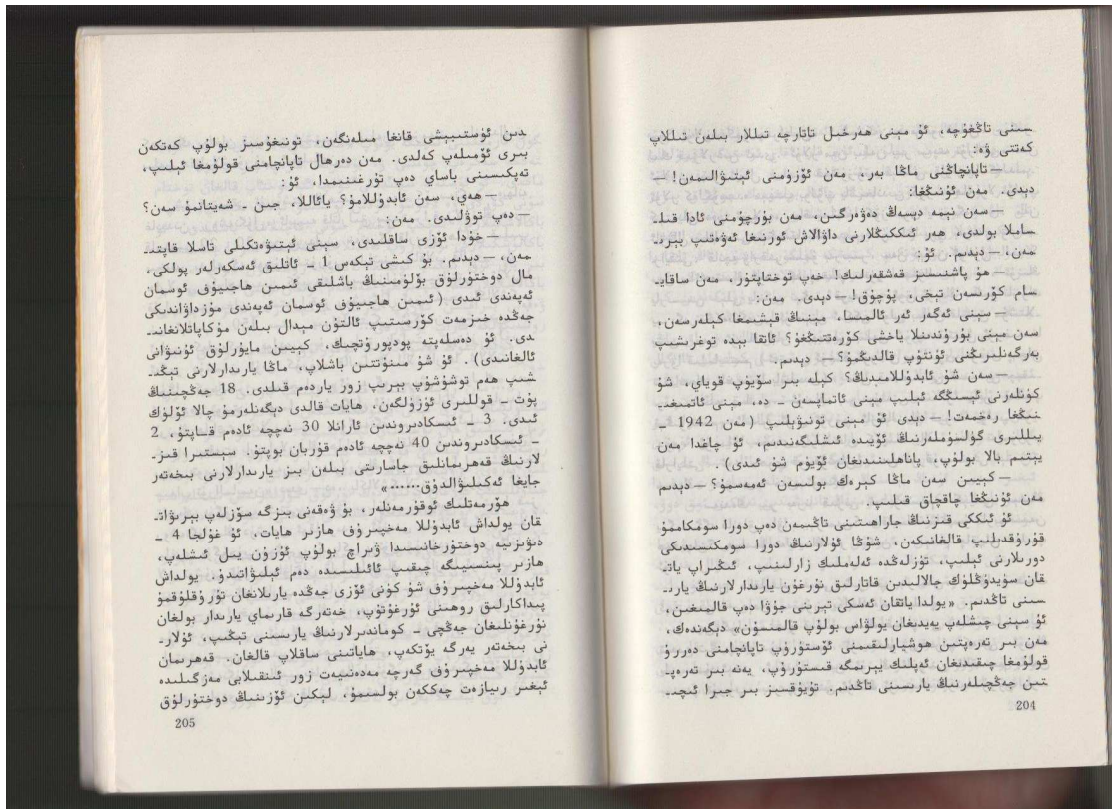 سىنى تاڭغۇچە، ئۇ مېنى ھەرخىل تاتارچە تىللار بىلەن تىللاپ
كەتتى ۋە:
—تاپانچاڭنى ماڭا بەر، مەن ئۆزۈمنى ئېتىۋالىمەن! —
دېدى. مەن ئۇنىڭغا:
—سەن نېمە دېسەڭ دەۋەرگىن، مەن بۇرچۇمنى ئادا قىلـ
ساملا بولدى، ھەر ئىككىڭلارنى داۋالاش ئورنىغا ئەۋەتىپ بېرىـ
مەن، — دېدىم. ئۇ:
—ھۇ پاشنىسىز قەشقەرلىك! خەپ توختاپتۇر، مەن ساقايـ
سام كۆرىسەن تېخى، پۇچۇق! — دېدى. مەن:
—سېنى ئەگەر ئەر ئالمىسا، مېنىڭ قېشىمغا كېلەرسەن،
سەن مېنى بۇرۇندىنلا ياخشى كۆرەتتىڭغۇ؟ ئاتقا بېدە توغرىشىپ
بەرگەنلىرىڭنى ئۇنتۇپ قالدىڭمۇ؟ — دېدىم.
—سەن شۇ ئابدۇللامىدىڭ؟ كېلە بىر سۆيۈپ قوياي، شۇ
كۈنلەرنى ئېسىڭگە ئېلىپ مېنى ئاتماپسەن ـ دە، مېنى ئاتمىغـ
نىڭغا رەخمەت! — دېدى ئۇ مېنى تونۇۋېلىپ (مەن 1942 ـ
يىللىرى گۈلسۈملەرنىڭ ئۆيىدە ئىشلىگەنىدىم، ئۇ چاغدا مەن
يېتىم بالا بولۇپ، پاناھلىنىدىغان ئۆيۈم شۇ ئىدى).
—كېيىن سەن ماڭا كېرەك بولىسەن ئەمەسمۇ؟ — دېدىم
مەن ئۇنىڭغا چاقچاق قىلىپ.
ئۇ ئىككى قىزنىڭ جاراھىتىنى تاڭىمەن دەپ دورا سومكاممۇ
قۇرۇقدىلىپ قالغانىكەن، شۇڭا ئۇلارنىڭ دورا سومكىسىدىكى
دورىلارنى ئېلىپ، تۈزلەڭدە ئەلەملىك زارلىنىپ، ئىڭراپ ياتـ
قان سۆيۈڭلۈك جالالىدىن قاتارلىق نۇرغۇن يارىدارلارنىڭ يارىـ
سىنى تاڭدىم. «يولدا ياتقان ئەسكى تېرىنى جۇۋا دەپ قالمىغىن،
ئۇ سېنى چىشلەپ يەيدىغان يولۋاس بولۇپ قالمىسۇن» دېگەندەك،
مەن بىر تەرەپتىن ھوشيارلىقىمنى ئۆستۈرۈپ تاپانچامنى دەررۇ
قولۇمغا چىقىدىغان ئەپلىك يېرىمگە قىستۇرۇپ، يەنە بىر تەرەپـ
تىن جەڭچىلەرنىڭ يارىسىنى تاڭدىم. تۇيۇقسىز بىر جىرا ئىچىـ
204
دىن ئۈستىبېشى قانغا مىلەنگەن، تونىغۇسىز بولۇپ كەتكەن
بىرى ئۆمىلەپ كەلدى. مەن دەرھال تاپانچامنى قولۇمغا ئېلىپ،
تەپكىسىنى باساي دەپ تۇرغىنىمدا، ئۇ:
—ھەي، سەن ئابدۇللامۇ؟ يائاللا، جىن ـ شەيتانمۇ سەن؟
—دەپ توۋلىدى. مەن:
—خۇدا ئۆزى ساقلىدى، سېنى ئېتىۋەتكىلى تاسلا قاپتىـ
مەن، — دېدىم. بۇ كىشى تېكەس 1 ـ ئاتلىق ئەسكەرلەر پولكى،
مال دوختۇرلۇق بۆلۈمىنىڭ باشلىقى ئىمىن ھاجىيوف ئوسمان
ئەپەندى ئىدى (ئىمىن ھاجىيوف ئوسمان ئەپەندى مۇزداۋاندىكى
جەڭدە خىزمەت كۆرسىتىپ ئالتۇن مېدال بىلەن مۇكاپاتلانغانىـ
دى. ئۇ دەسلەپتە پودپورۇتچىك، كېيىن مايورلۇق ئۇنىۋانى
ئالغانىدى). ئۇ شۇ مىنۇتتىن باشلاپ، ماڭا يارىدارلارنى تېڭىـ
شىپ ھەم توشۇشۇپ بېرىپ زور ياردەم قىلدى. 18 جەڭچىنىڭ
پۇت ـ قوللىرى ئۈزۈلگەن. ھايات قالدى دېگەنلەرمۇ چالا ئۆلۈك
ئىدى. 3 ـ ئىسكادىروندىن ئارانلا 30 نەچچە ئادەم قاپتۇ، 2
ـ ئىسكادىروندىن 40 نەچچە ئادەم قۇربان بوپتۇ. سېستىرا قىزـ
لارنىڭ قەھرىمانلىق جاسارىتى بىلەن بىز يارىدارلارنى بىخەتەر
جايغا ئەكىلىۋالدۇق......»
ھۆرمەتلىك ئوقۇرمەنلەر، بۇ ۋەقەنى بىزگە سۆزلەپ بېرىۋاتـ
قان يولداش ئابدۇللا مەخپىروف ھازىر ھايات، ئۇ غۇلجا 4 ـ
دىۋىزىيە دوختۇرخانىسىدا ۋىراچ بولۇپ ئۇزۇن يىل ئىشلەپ،
ھازىر پىنسىيىگە چىقىپ ئائىلىسىدە دەم ئېلىۋاتىدۇ. يولداش
ئابدۇللا مەخپىروف شۇ كۈنى ئۆزى جەڭدە يارىلانغان تۇرۇقلۇقمۇ
پىداكارلىق روھىنى ئۇرغۇتۇپ، خەتەرگە قارىماي يارىدار بولغان
نۇرغۇنلىغان جەڭچى ـ كوماندىرلارنىڭ يارىسىنى تېڭىپ، ئۇلارـ
نى بىخەتەر يەرگە يۆتكەپ، ھاياتىنى ساقلاپ قالغان. قەھرىمان
ئابدۇللا مەخپىروف گەرچە مەدەنىيەت زور ئىنقىلابى مەزگىلىدە
ئېغىر رىيازەت چەككەن بولسىمۇ، لېكىن ئۆزىنىڭ دوختۇرلۇق
205